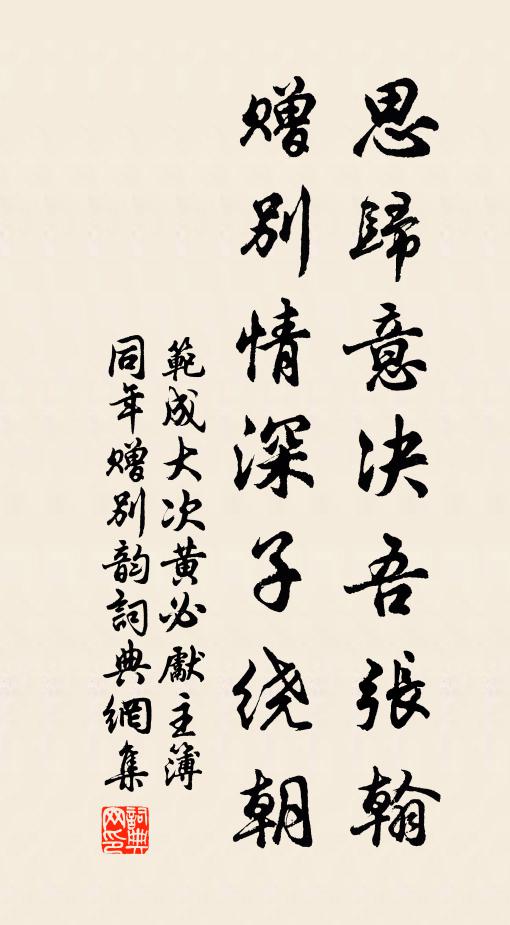 思歸意決吾張翰
贈別情深子绕朝
範成大次黄必獻主簿
同年贈別韵詞典網集
詞典
网印